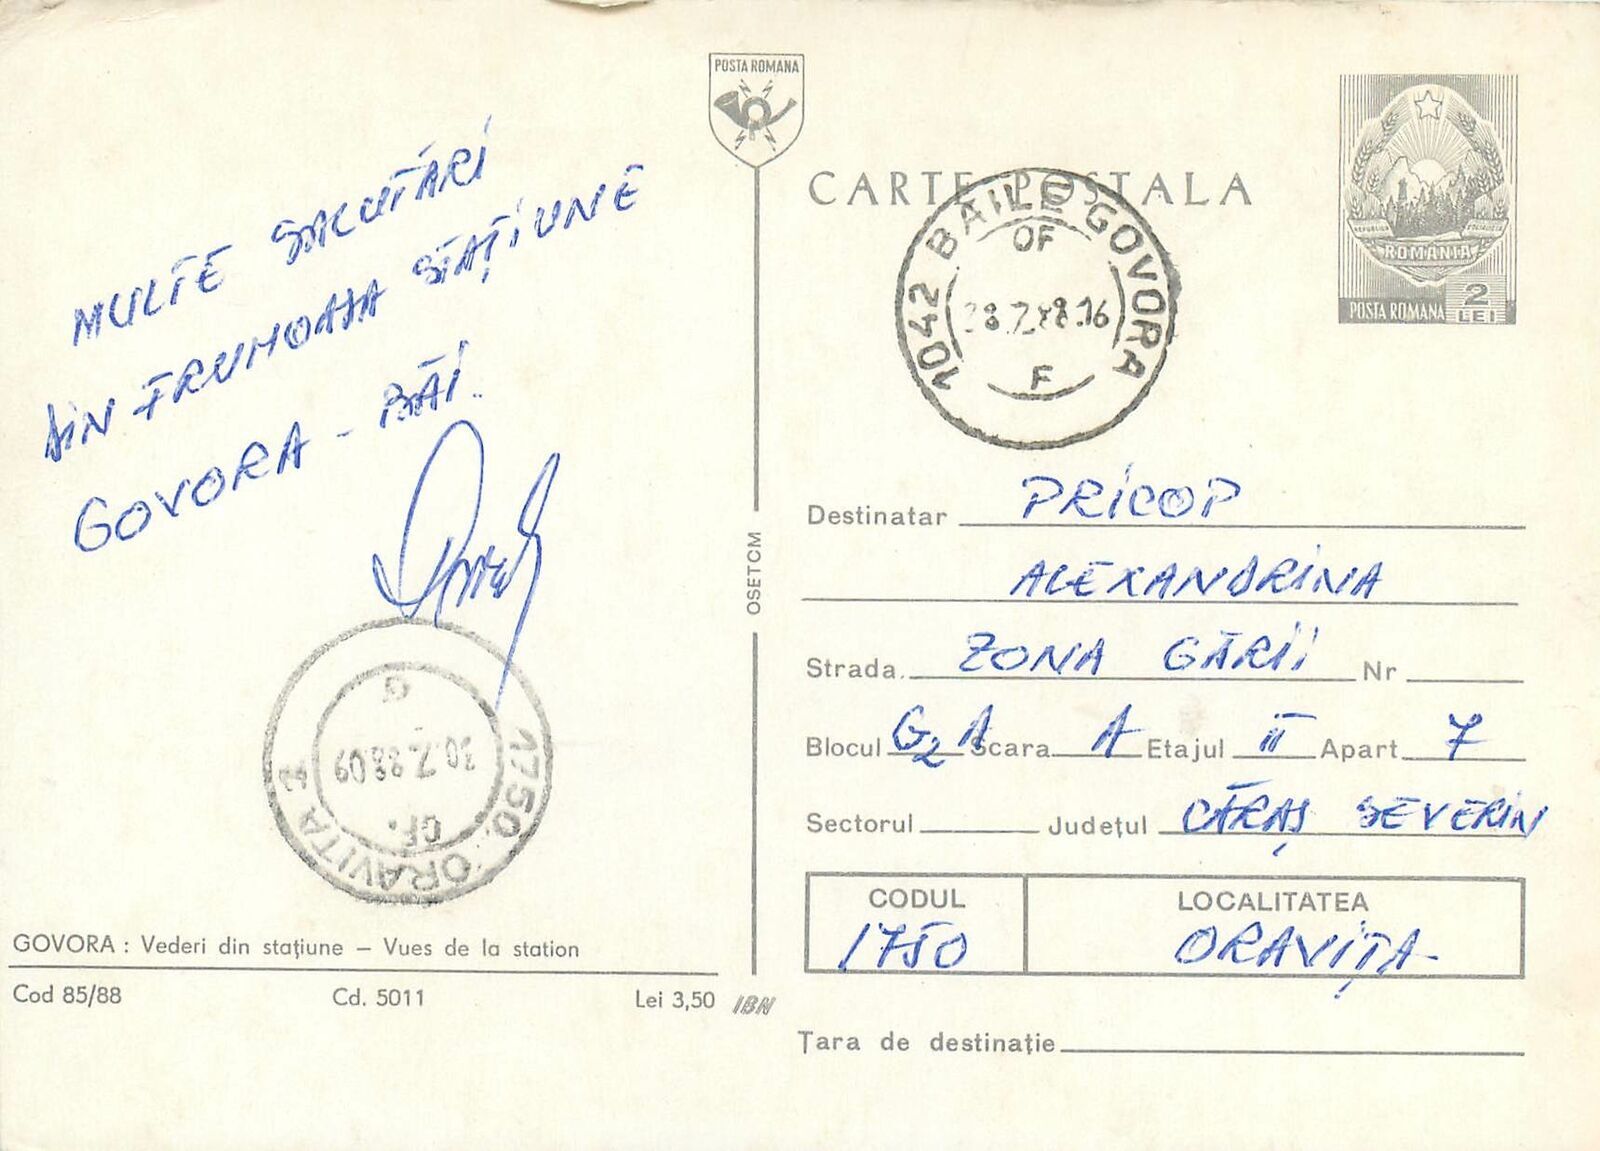 POSTA ROMANA
CARTE POSTALA
ROMANIA
POSTA ROMANA 2 LEI
1042 BAILE GOVORA
OF
28.7.88.16
F
MULTE SALUTĂRI
DIN FRUMOASA STAȚIUNE
GOVORA - BĂI.
OSETCM
Destinatar PRICOP
ALEXANDRINA
Strada. ZONA GĂRII Nr
Blocul G2A Scara A Etajul II Apart 7
Sectorul Județul CĂRAȘ SEVERIN
CODUL LOCALITATEA
1750 ORAVIȚA
Țara de destinație
1750. ORAVITA 1
OF.
30.7.88.09
G
GOVORA : Vederi din stațiune – Vues de la station
Cod 85/88 Cd. 5011 Lei 3,50 IBN